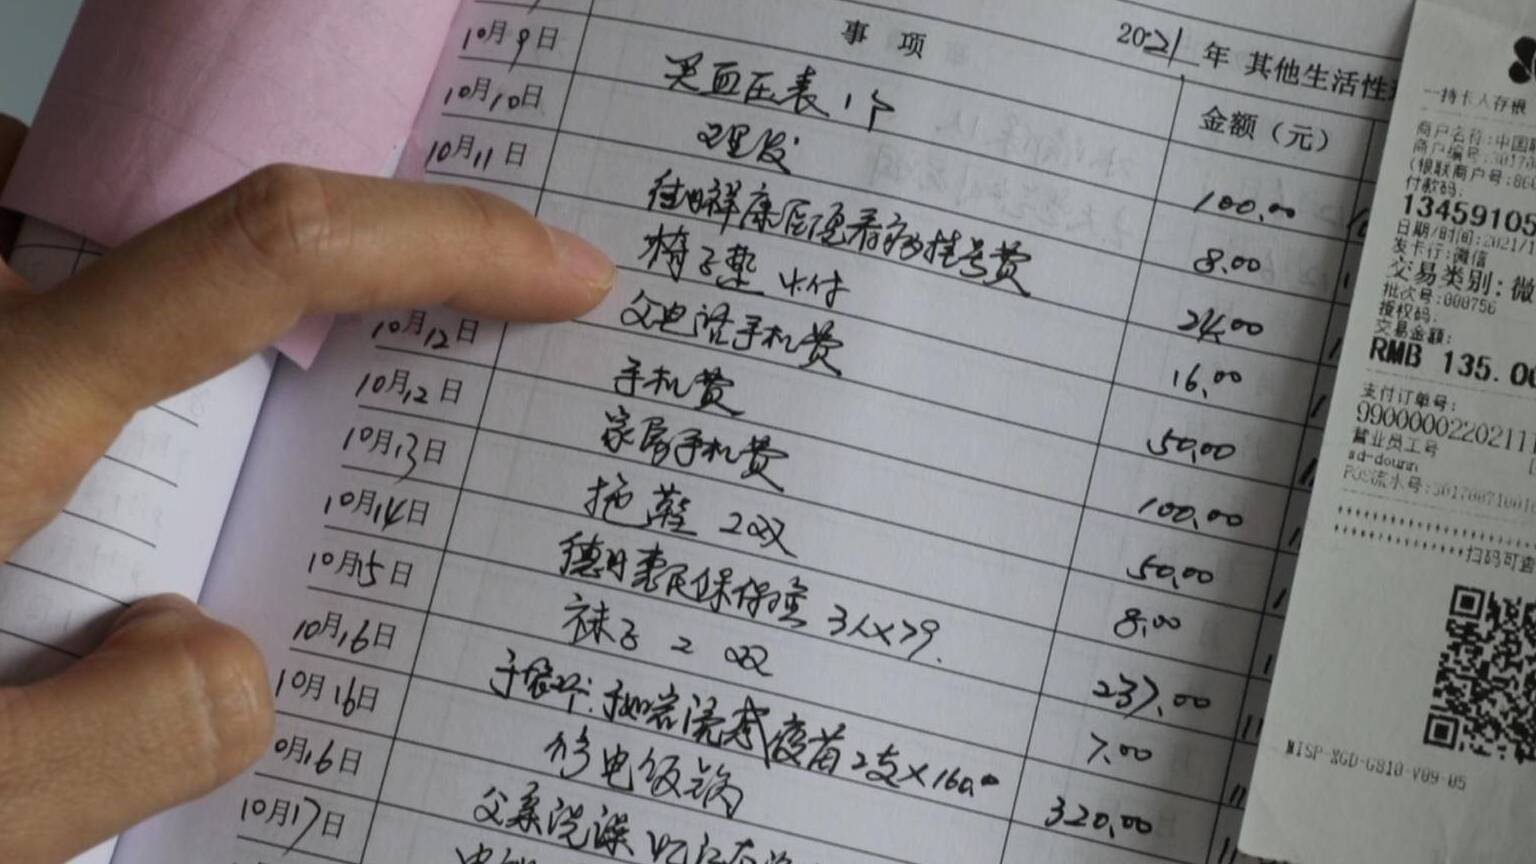 事 项
2021 年 其他生活性
金额（元）
10月9日 买血压表 1个 100.00
10月10日 理发 8.00
10月11日 祥康医 看病挂号费 24.00
椅子垫 16.00
10月12日 父电话手机费 50.00
10月12日 手机费 100.00
10月13日 家居手机费 50.00
10月14日 拖鞋 2双 8.00
10月15日 惠民保保险 3人×79. 237.00
10月16日 袜子 2 双 7.00
10月16日 流感疫苗2支×160.00 320.00
0月16日 修电饭锅
10月17日 父亲洗澡
一持卡人存根
商户名称:中国
商户编号:
(银联商户号:
付款码:
13459105
日期/时间:2021/1
发卡行:微信
交易类别: 微
批次号:000756
授权码:
交易金额:
RMB 135.0
支付订单号:
9900000220211
营业员工号
sd-dounn
POS流水号:
扫码可查